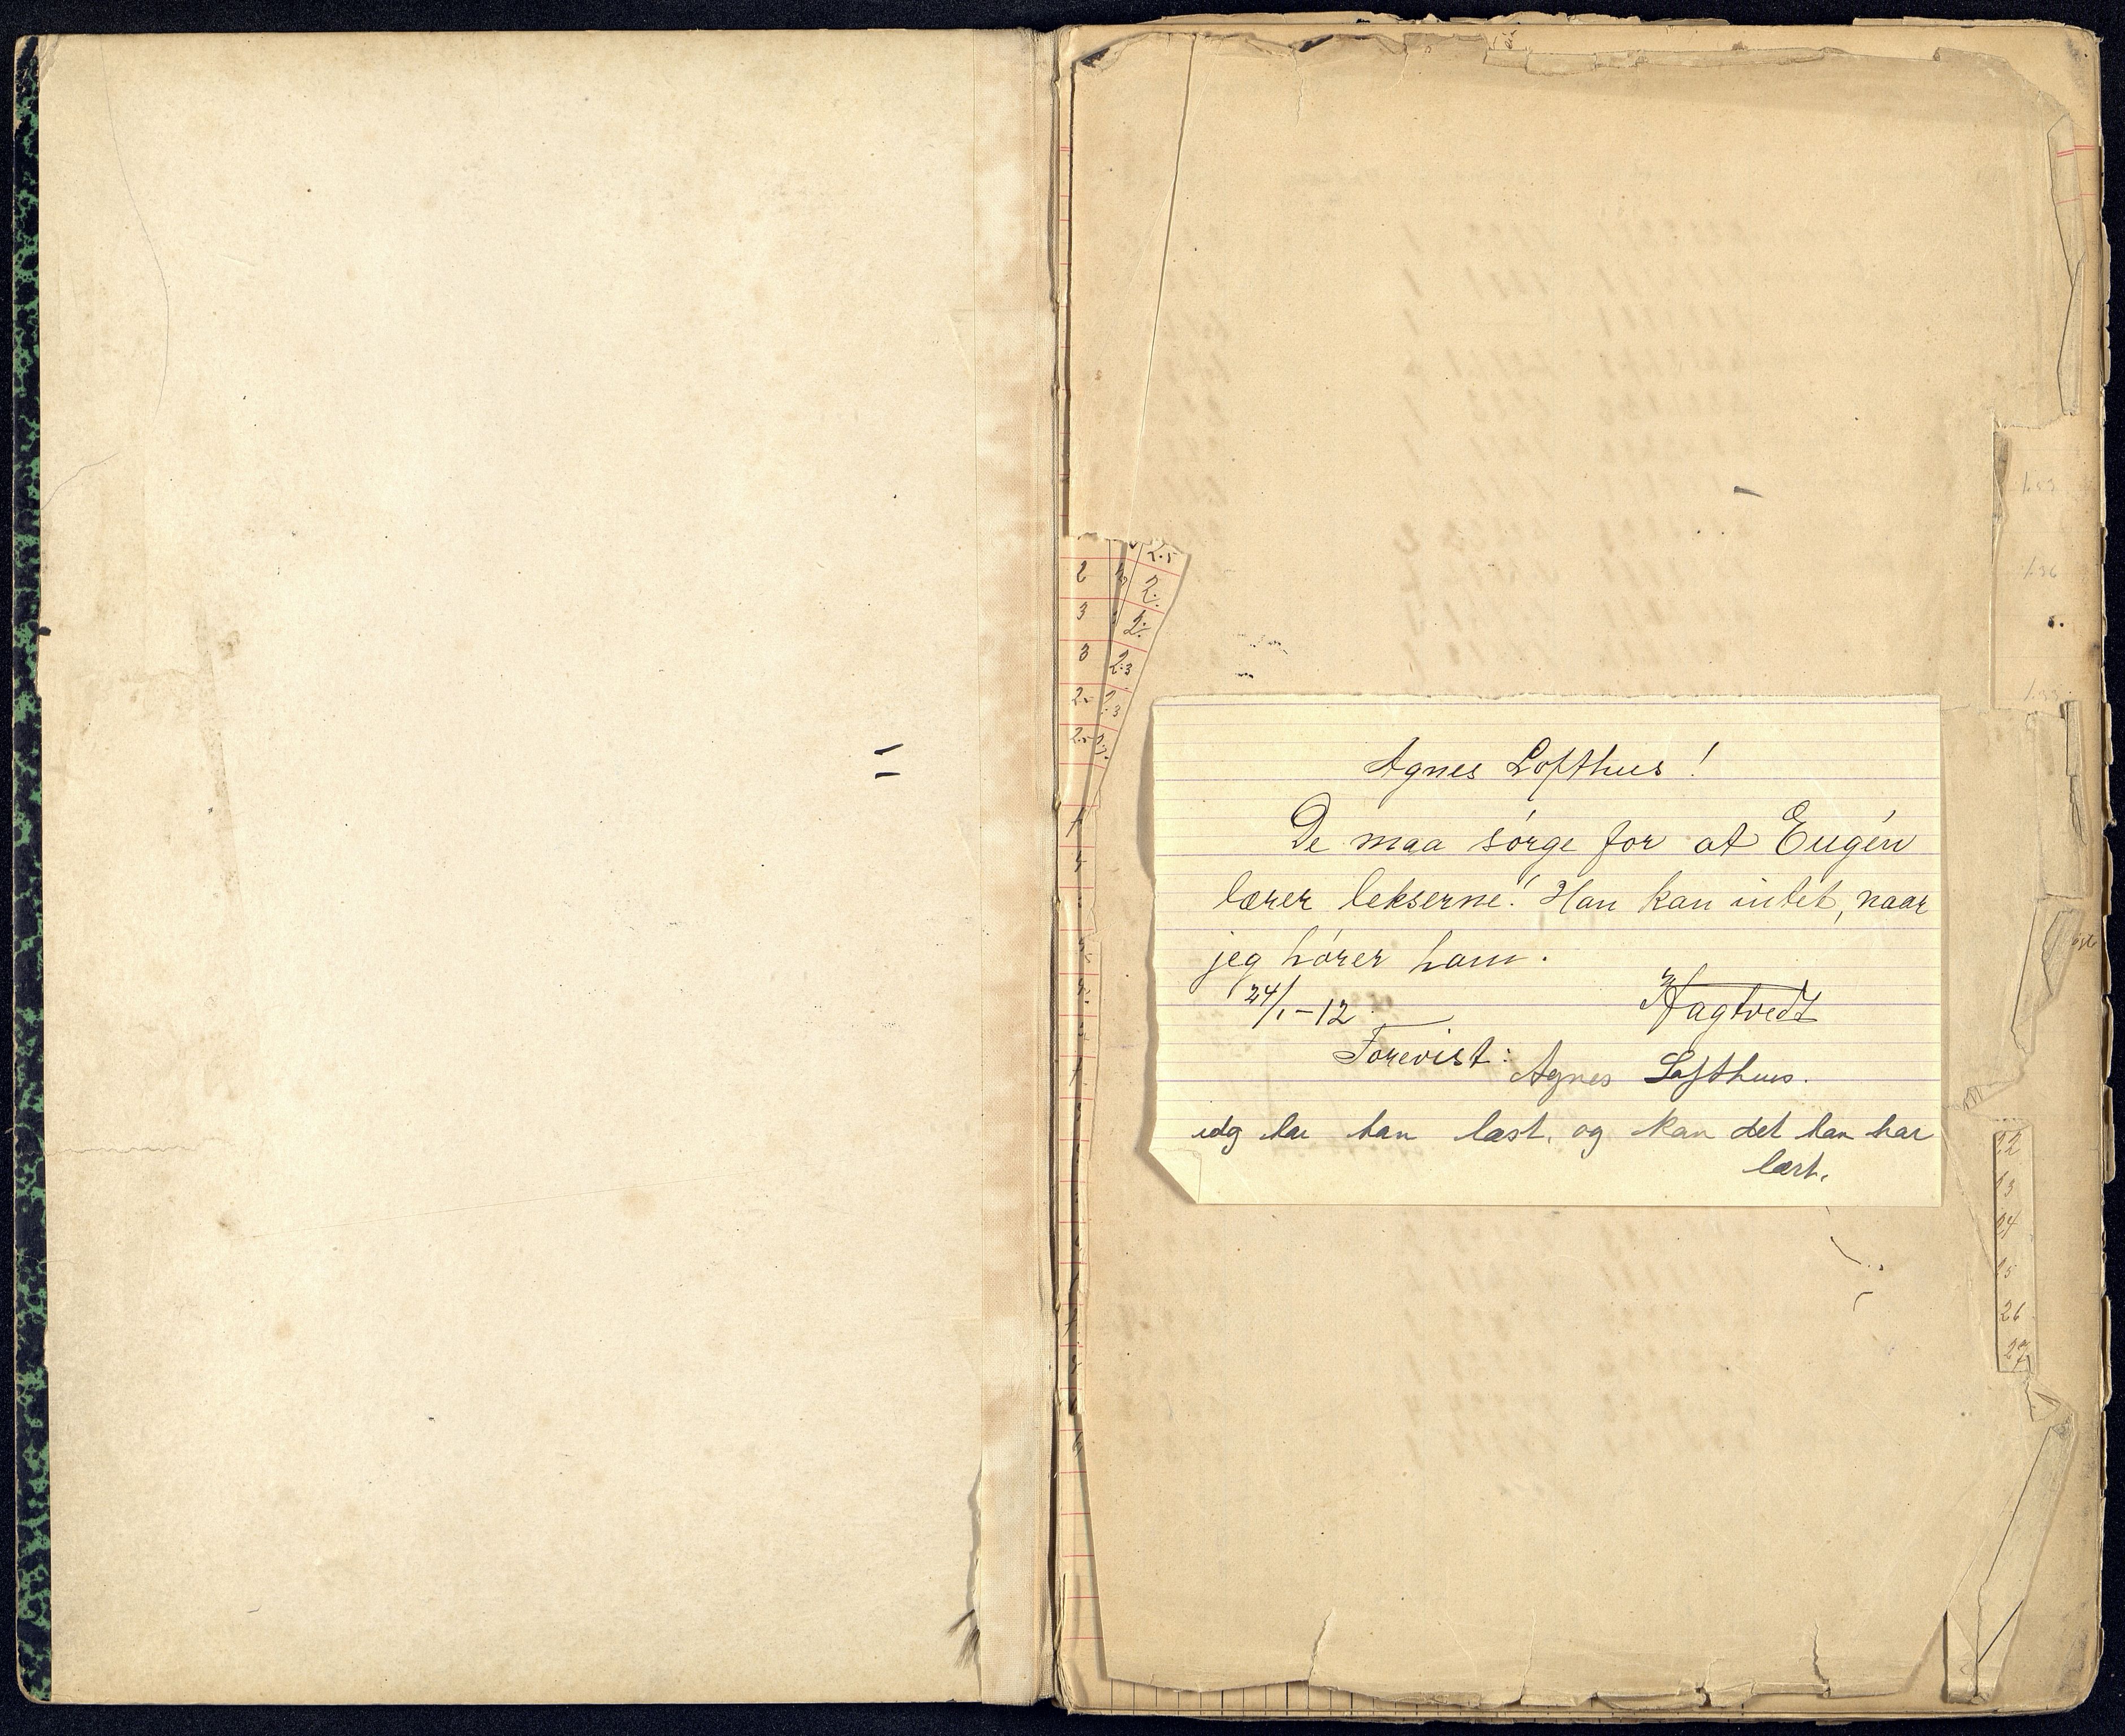 Agnes Lofthus!
De maa sørge for at Eugén
lærer lekserne! Han kan intet, naar
jeg hører ham.
24/1-12. Hagtvedt
Forevist:
Agnes Lofthus.
idg har han læst, og kan det han har
lært.
2.5
2 2.
3 2.
3 2.3
2.3
22
23
24
25
26
27